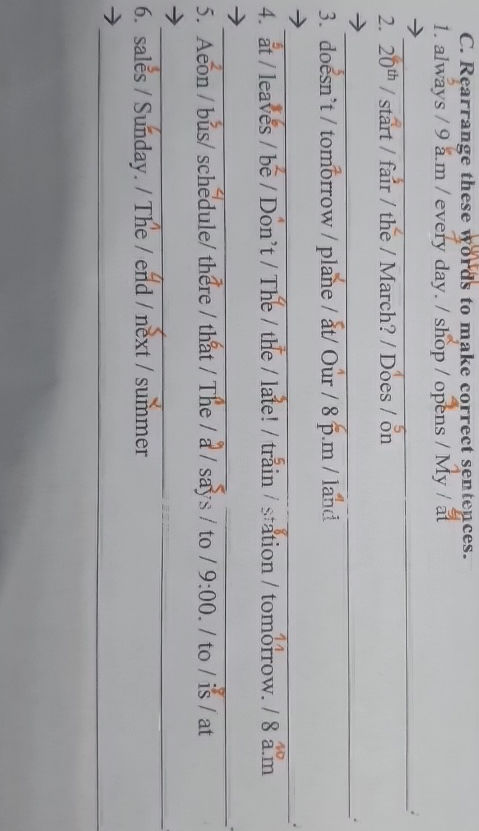 C. Rearrange these words to make correct sentences.
1. always / 9 a.m / every day. / shop / opens / My / at
→
2. 20th / start / fair / the / March? / Does / on
→
3. doesn't / tomorrow / plane / at/ Our / 8 p.m / land
→
4. at / leaves / be / Don't / The / the / late! / train / station / tomorrow. / 8 a.m
→
5. Aeon / bus/ schedule/ there / that / The / a / says / to / 9:00. / to / is / at
→
6. sales / Sunday. / The / end / next / summer
→